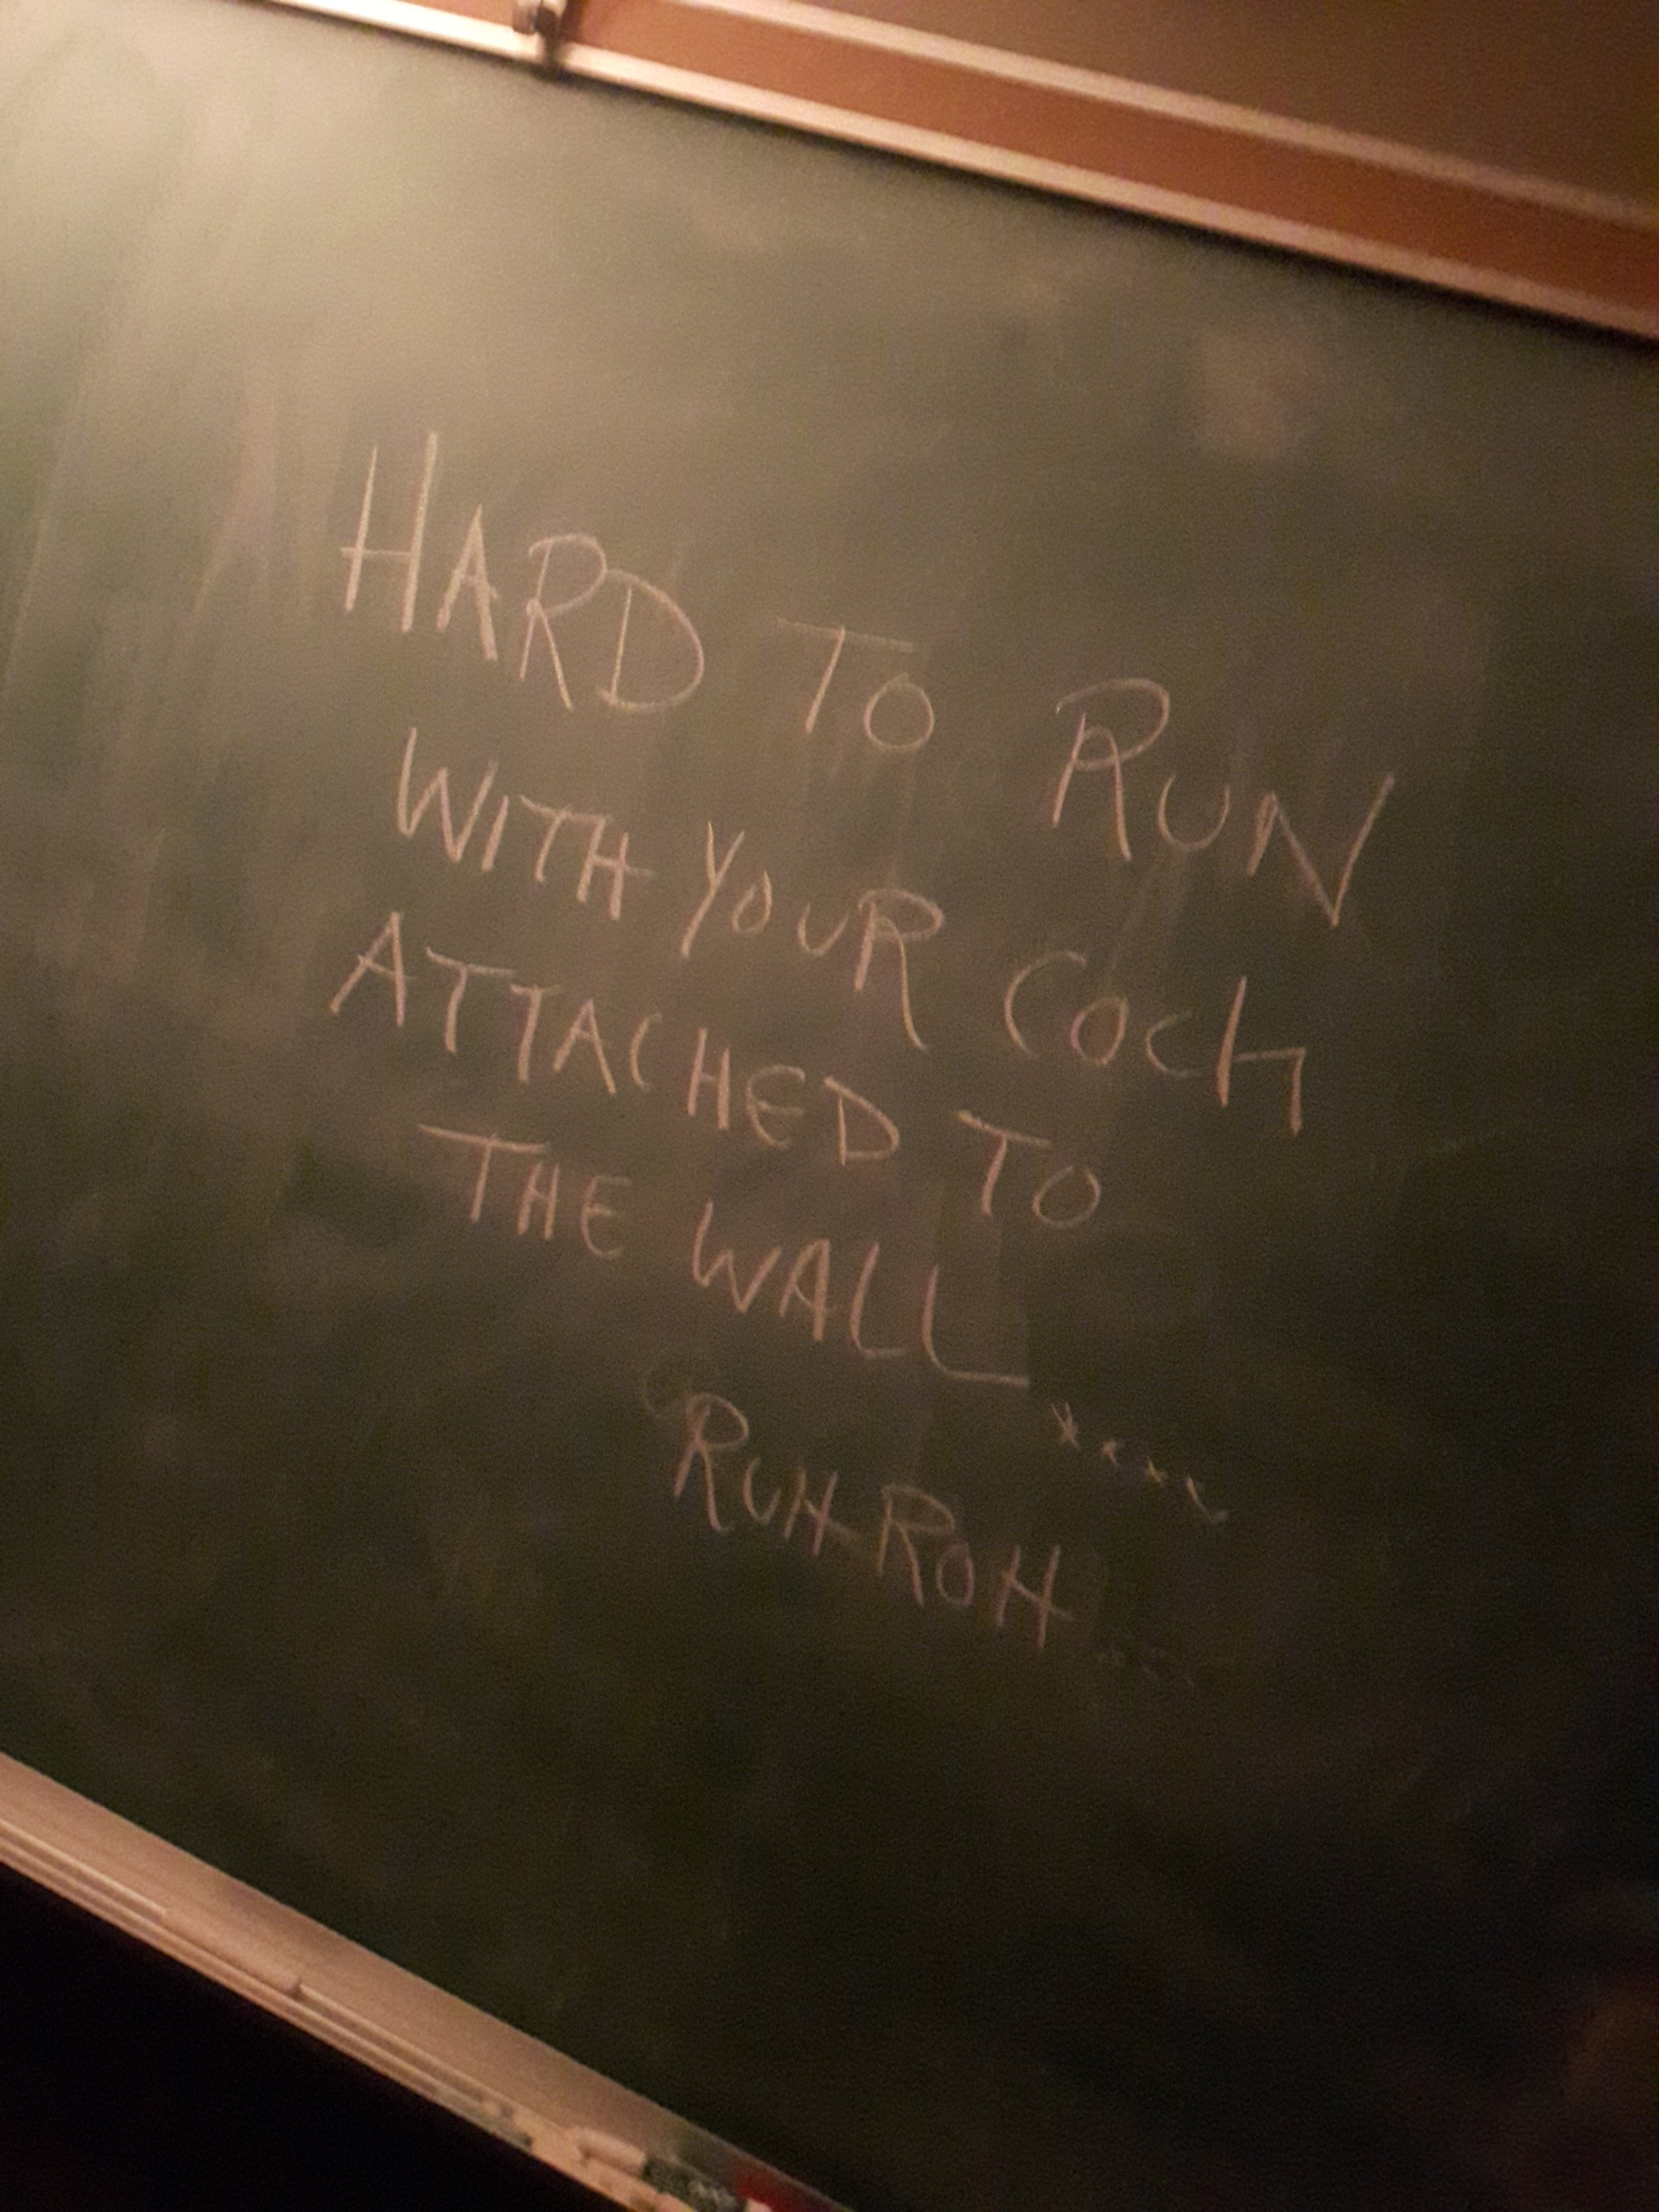 HARD TO RUN
WITH YOUR COCK
ATTACHED TO
THE WALL....
RUH ROH...